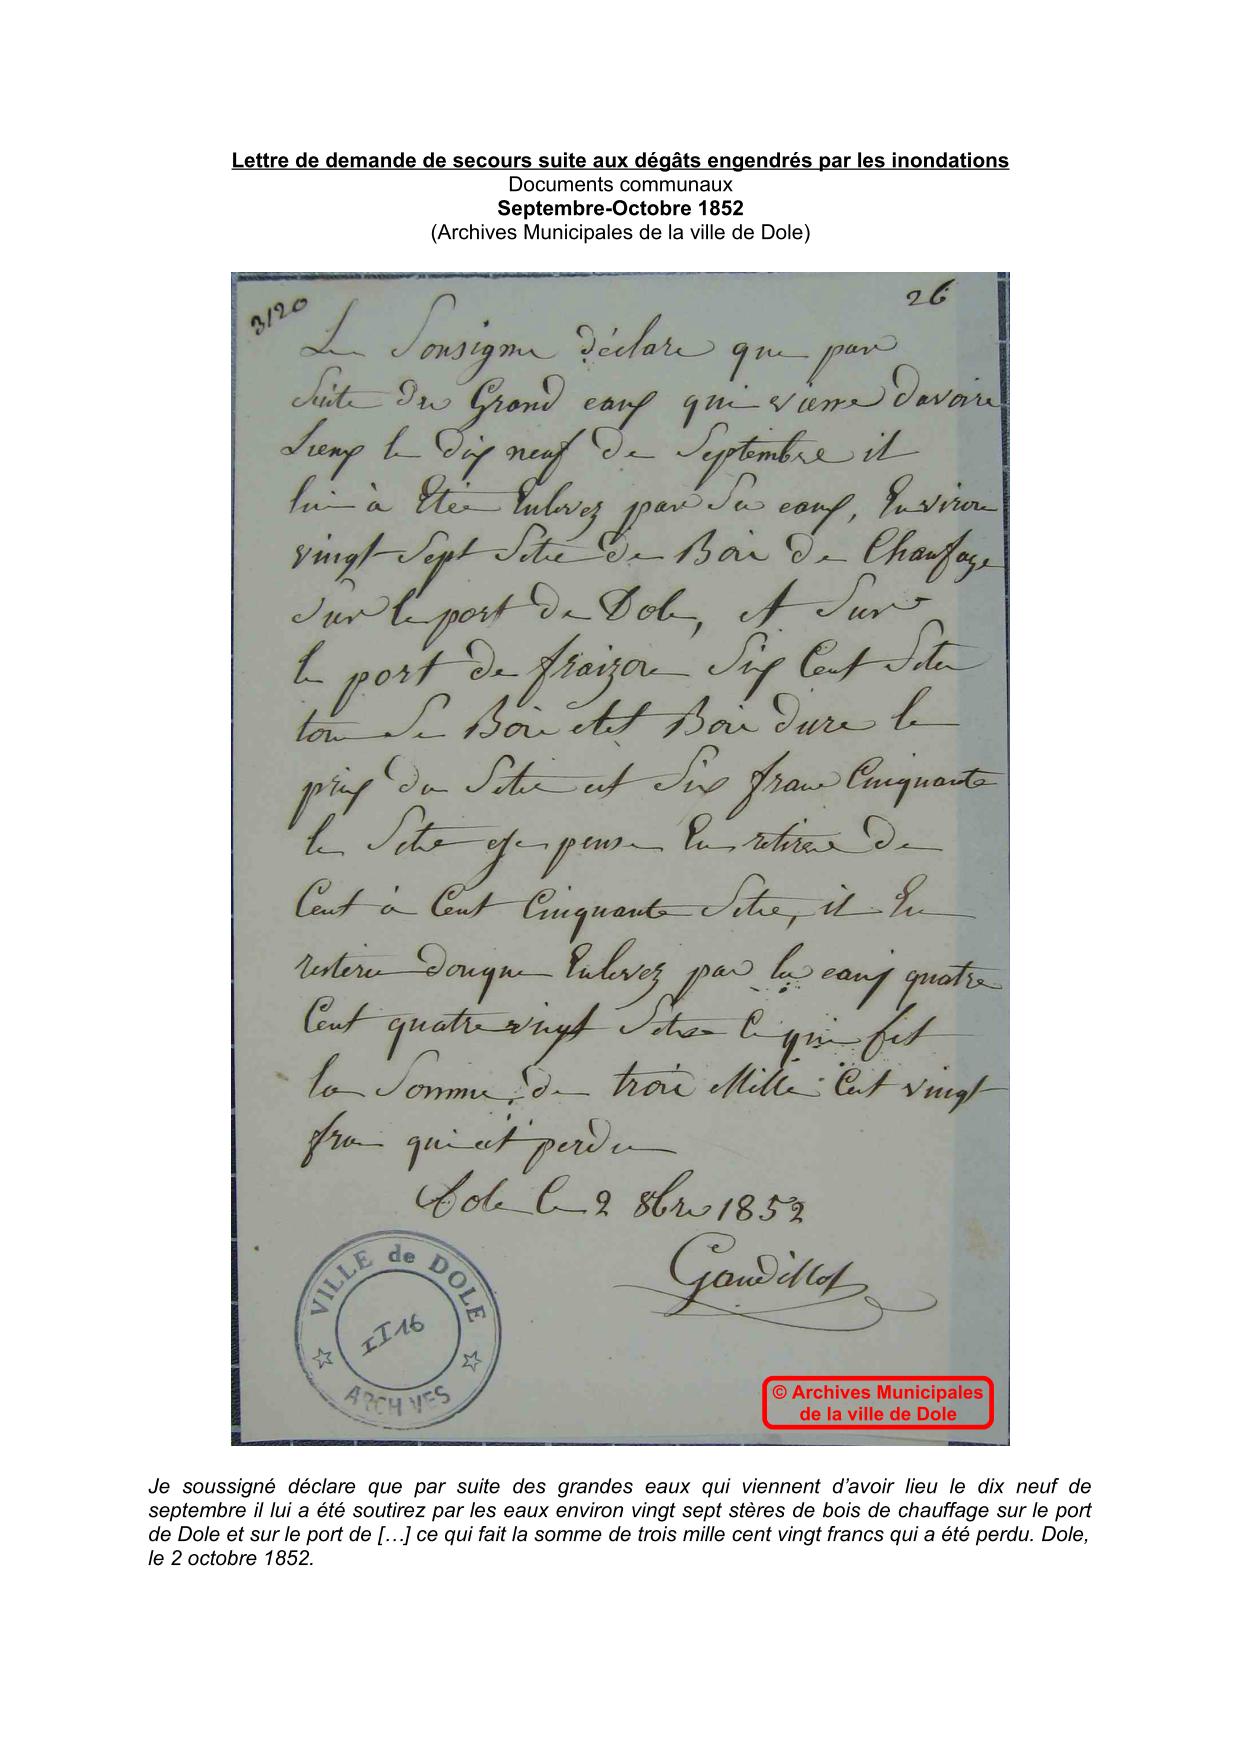 Lettre de demande de secours suite aux dégâts engendrés par les inondations
Documents communaux
Septembre-Octobre 1852
(Archives Municipales de la ville de Dole)
3120
26
Le Sousigne déclare que par
Suite du Grand eaux qui vienne davoire
Lieux le dix neuf de Septembre il
lui à Etée Enlevez par Se eaux, Environ
vingt Sept Stere de Boi de Chaufage
Sur le port de Dole, et Sur
le port de fraizon Six Cent Stere
tou Se Boi etet Boi dure le
prix du Stere et Six franc Cinquante
le Stere et je pense En retirere de
Cent à Cent Cinquante Stere, il En
restere donque Enlevez par les eaux quatre
Cent quatre vingt Stere Ce qui fet
la Somme de troi Mille Cent vingt
fran qui et perdu
Dole le 2 8bre 1852
Gaudillot
VILLE de DOLE
II16
ARCHIVES
© Archives Municipales
de la ville de Dole
Je soussigné déclare que par suite des grandes eaux qui viennent d’avoir lieu le dix neuf de
septembre il lui a été soutirez par les eaux environ vingt sept stères de bois de chauffage sur le port
de Dole et sur le port de […] ce qui fait la somme de trois mille cent vingt francs qui a été perdu. Dole,
le 2 octobre 1852.